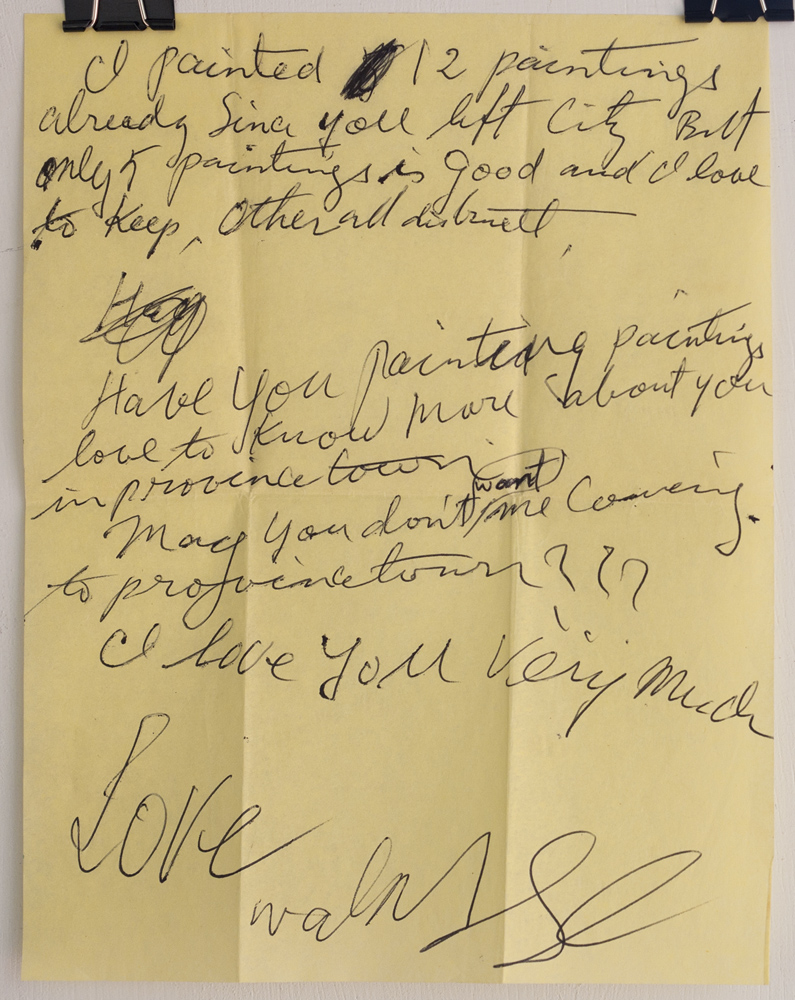 I painted 12 paintings
already Since you left City But
only 5 paintings is good and I love
to Keep, Other all distruell
Have You painting paintings
love to Know More about you
in provincetown
May You don't want me Coming.
to provincetown???
I love You Very Much
Love